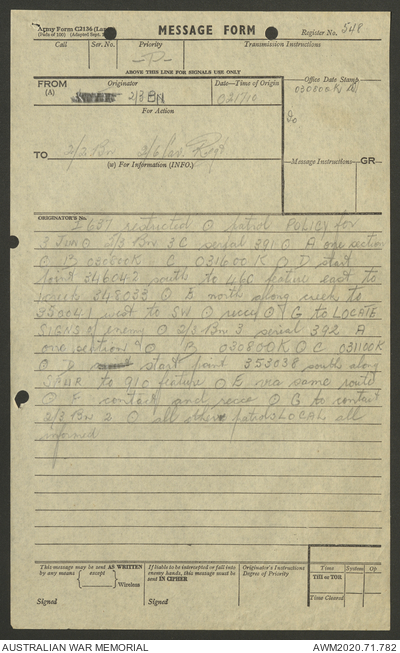 Army Form C2136 (Large)
(Pads of 100)
MESSAGE FORM
Register No. 548
Call Ser. No. Priority Transmission Instructions
-P-
ABOVE THIS LINE FOR SIGNALS USE ONLY
FROM (A)
Originator
Date—Time of Origin
Office Date Stamp
2/3 BN
030800K
For Action
TO
2/2 Bn 2/6 Cav Regt
(w) For Information (INFO.)
Message Instructions GR
ORIGINATOR'S No.
O 637 restricted O patrol POLICY for
3 JUN O 2/3 Bn 3 C serial 391 O A one section
O B 030800K - C 031600K O D start
point 346042 south to 460 feature east to
creek 348033 O E north along creek to
350041 west to SW O recce O G to LOCATE
SIGNS of enemy O 2/3 Bn 3 serial 392 A
one section O B 030800K O C 031100K
O D start point 353038 south along
SPUR to 910 feature O E via same route
O F contact and recce O G to contact
2/3 Bn 2 O all these patrols LOCAL all
informed
This message may be sent AS WRITTEN
by any means (except) Wireless
If liable to be intercepted or fall into
enemy hands, this message must be
sent IN CIPHER
Originator's Instructions
Degree of Priority
Time System Op
THI or TOR
Time Cleared
Signed Signed
AUSTRALIAN WAR MEMORIAL AWM2020.71.782